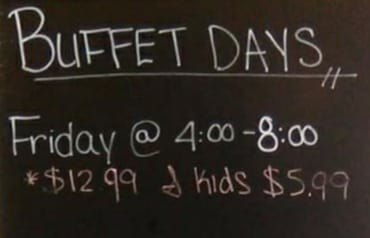 BUFFET DAYS
Friday @ 4:00-8:00
*$12.99 & Kids $5.99